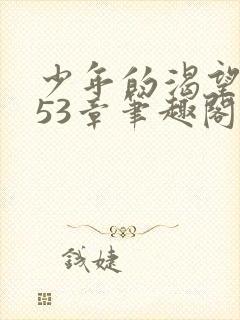 少年的渴望
53章笔趣阁
钱婕